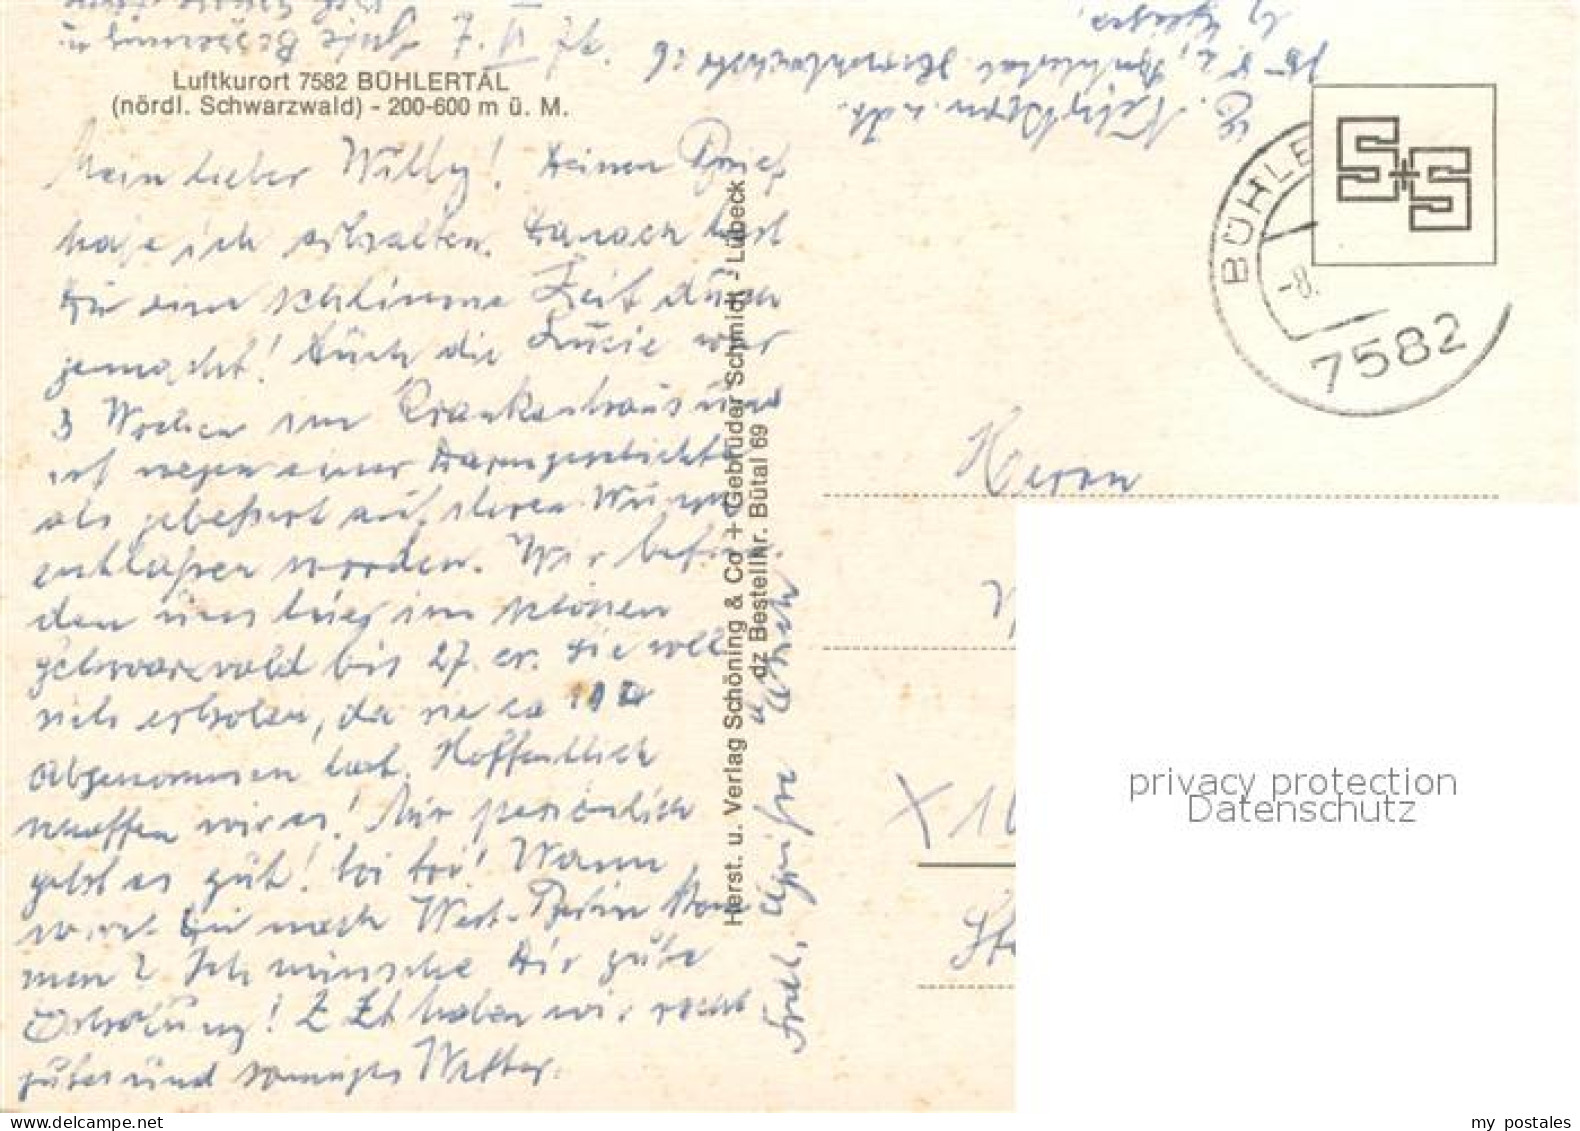 Luftkurort 7582 BÜHLERTAL
(nördl. Schwarzwald) - 200-600 m ü. M.
Mein lieber Willy! Deinen Brief
habe ich erhalten. Danach hast
Du eine schlimme Zeit durch
gemacht! Auch die Luzie war
3 Wochen im Krankenhaus und
ist wegen einer Darmgeschichte
als gebessert auf ihren Wunsch
entlassen worden. Wir befin-
den uns hier im schönen
Schwarzwald bis 27. er. Sie soll
sich erholen, da sie ca
abgenommen hat. Hoffentlich
schaffen wir es! Mir persönlich
geht es gut! toi toi! Wann
wirst Du nach West-Berlin kom
men? Ich wünsche Dir gute
Erholung! Z Zt haben wir recht
gutes und sonniges Wetter.
Herst. u. Verlag Schöning & Co + Gebrüder Schmidt - Lübeck
dz Bestellnr. Bütal 69
BÜHLE
-8.
7582
S+S
Herrn
privacy protection
Datenschutz
my postales
www.delcampe.net